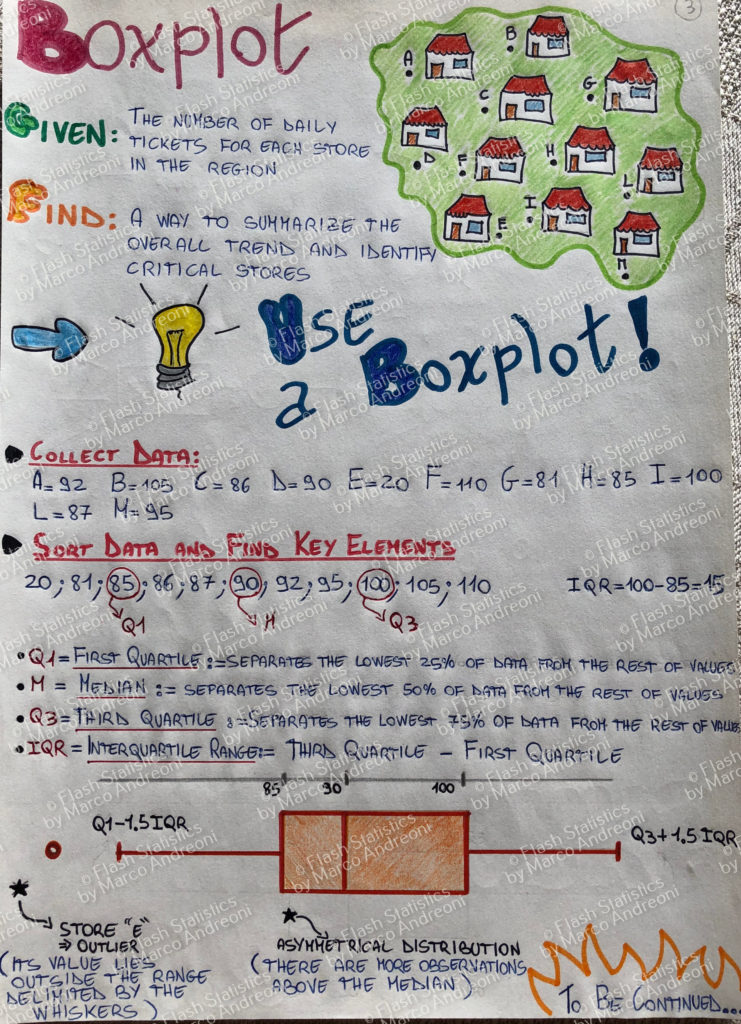 3
Boxplot
Given: The number of daily
tickets for each store
in the region
Find: A way to summarize the
overall trend and identify
critical stores
A
B
C
G
D
F
H
L
E
I
M
Use
a Boxplot!
Collect Data:
A=92 B=105 C=86 D=90 E=20 F=110 G=81 H=85 I=100
L=87 M=95
Sort Data and Find Key Elements
20; 81; 85; 86; 87; 90; 92; 95; 100; 105; 110 IQR=100-85=15
Q1 M Q3
Q1= First Quartile:=separates the lowest 25% of data from the rest of values
M = Median := separates the lowest 50% of data from the rest of values
Q3= Third Quartile :=separates the lowest 75% of data from the rest of values
IQR = Interquartile Range:= Third Quartile - First Quartile
85 90 100
Q1-1.5IQR Q3+1.5IQR
Store "E"
⇒ Outlier
(Its value lies
outside the range
delimited by the
whiskers)
Asymmetrical distribution
(There are more observations
above the median)
To Be Continued...
© Flash Statistics
by Marco Andreoni